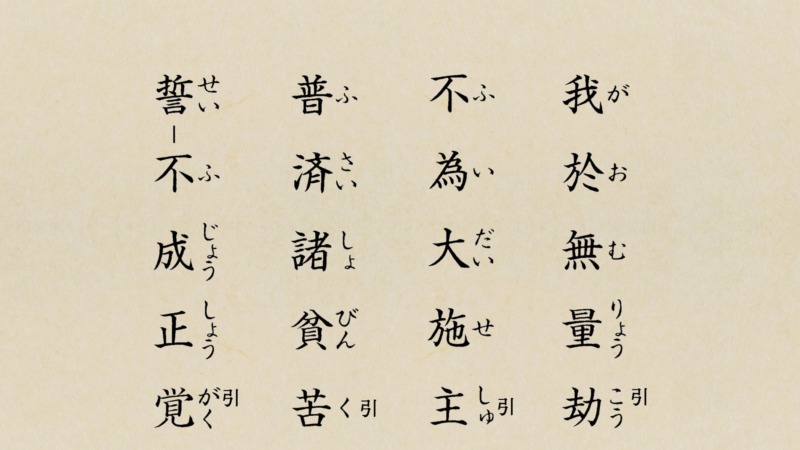 我於無量劫
がおむりょうこう引
不為大施主
ふいだいせしゅ引
普済諸貧苦
ふさいしょびんく引
誓不成正覚
せいふじょうしょうがく引